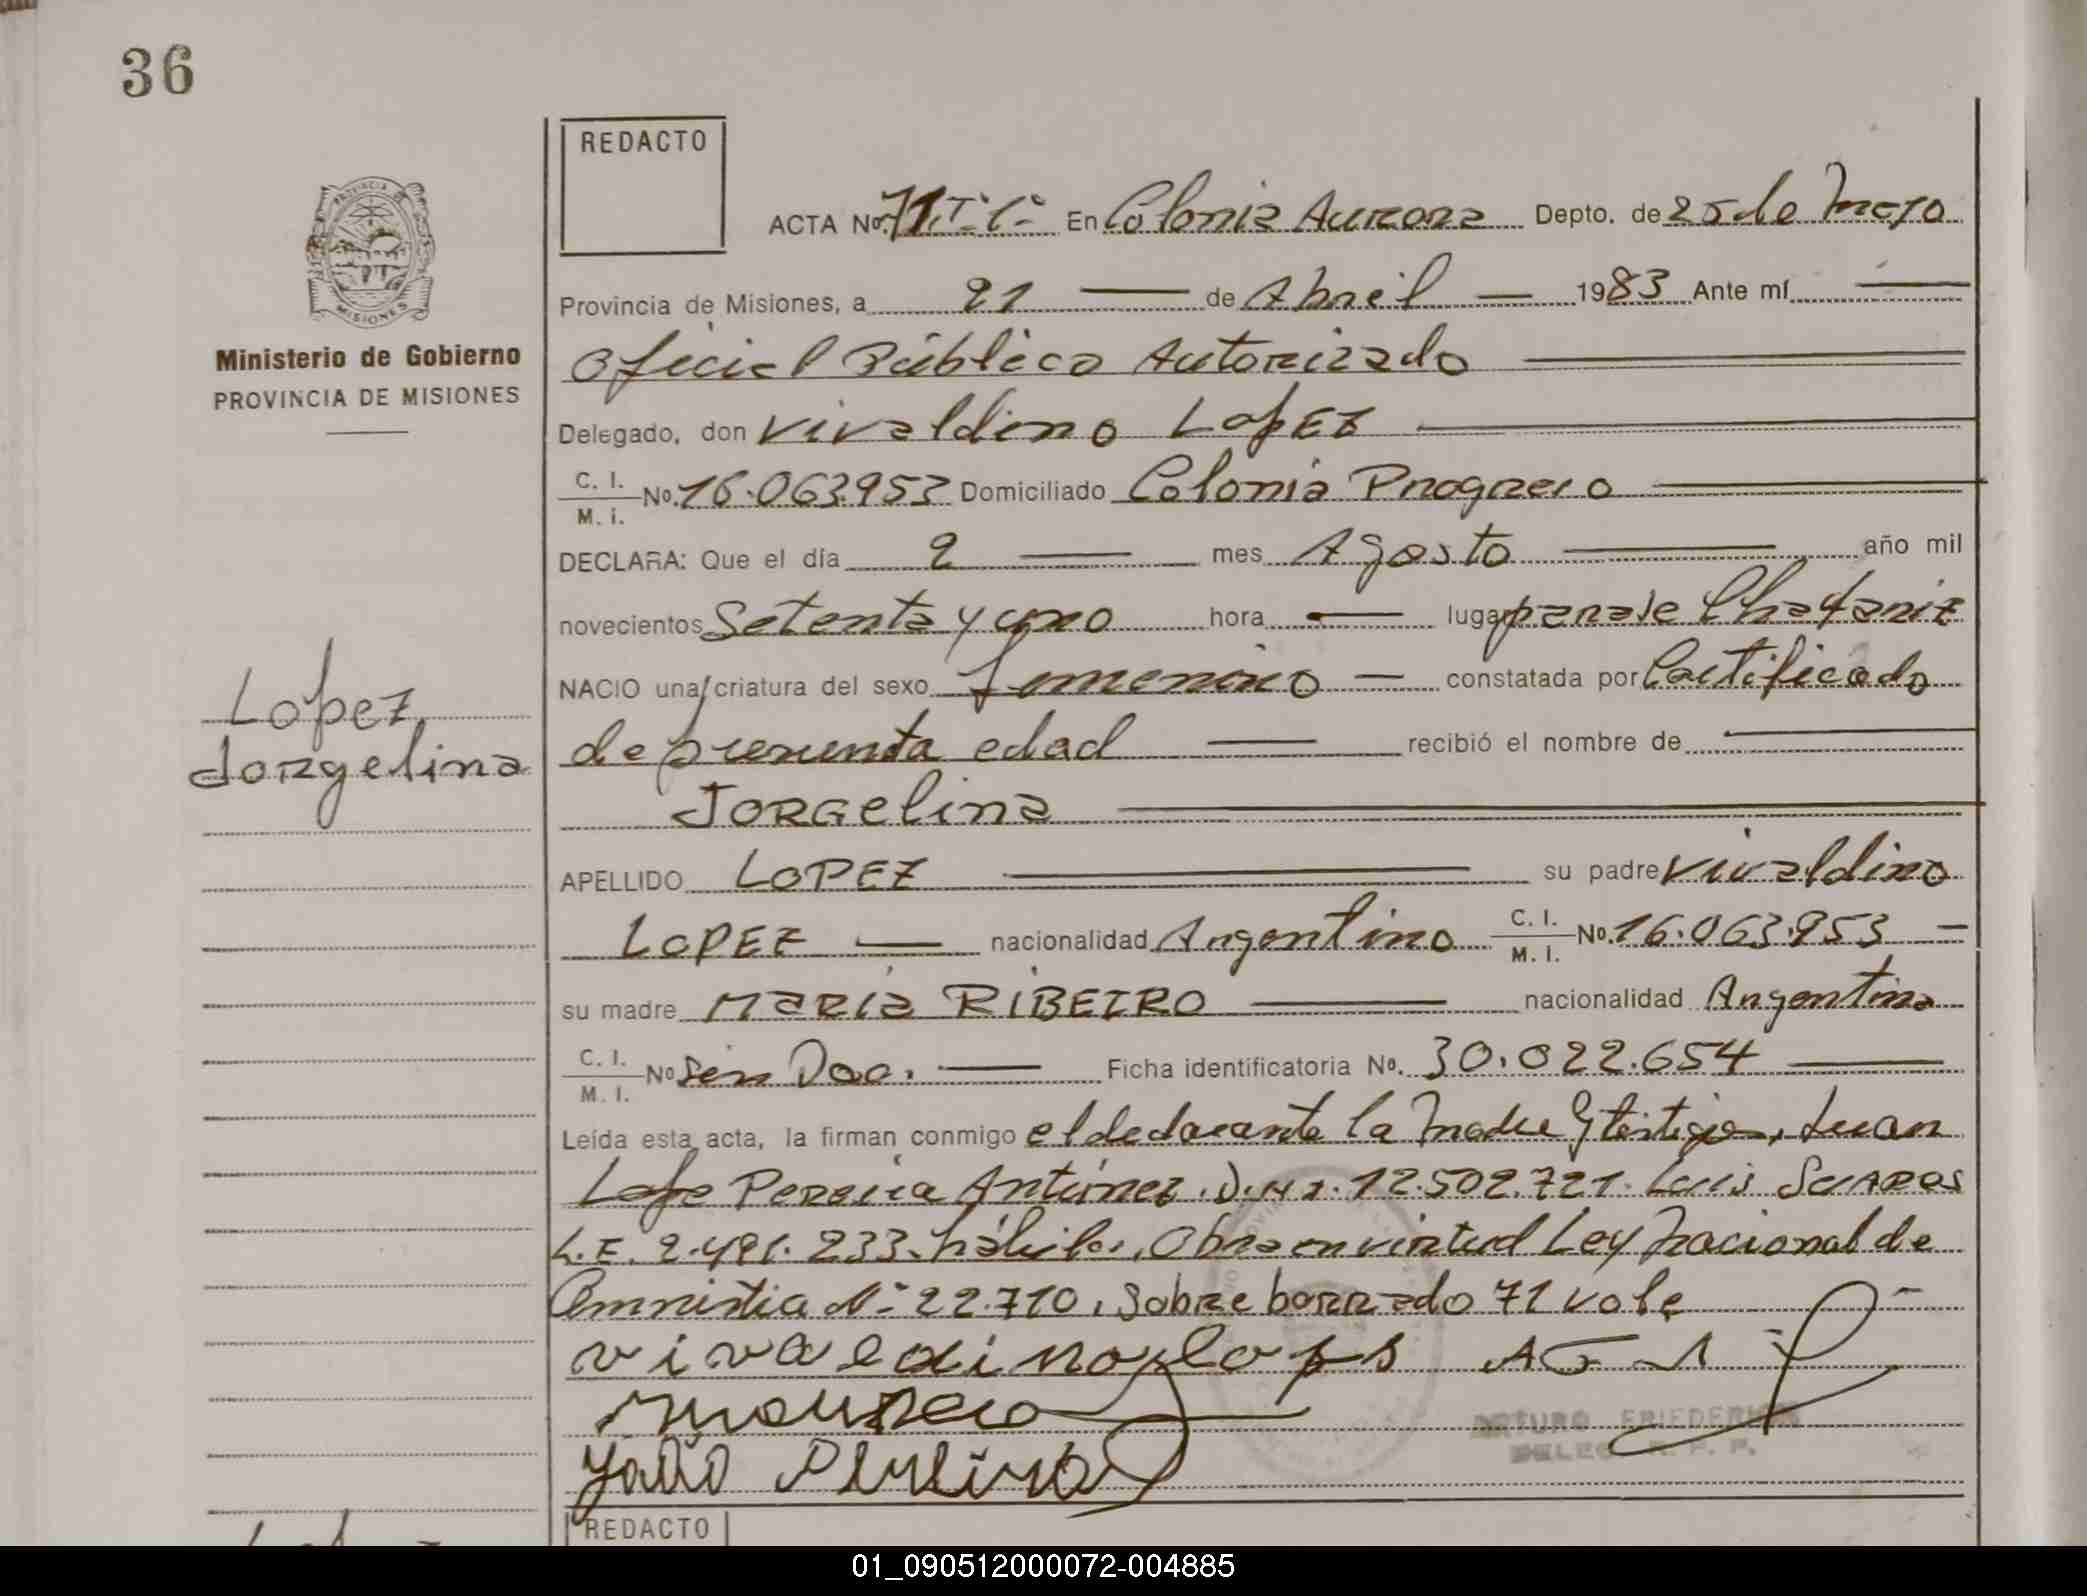 36
REDACTO
ACTA No. 71 Tº 1º En Colonia Aurora Depto. de 25 de Mayo
Provincia de Misiones, a 21 de Abril 1983 Ante mí
Oficial Público Autorizado
Ministerio de Gobierno
PROVINCIA DE MISIONES
Delegado, don Vivaldino LopEz
C. I. M. i. No. 16.063.953 Domiciliado Colonia Progreso
DECLARA: Que el día 2 mes Agosto año mil
novecientos Setenta y uno hora lugar paraje Chafariz
NACIO una criatura del sexo femenino constatada por Certificado
de presunta edad recibió el nombre de
Lopez
Jorgelina
JORGelina
APELLIDO LOPEZ su padre Vivaldino
LOPEZ nacionalidad Argentino C. I. M. I. No. 16.063.953
su madre Maria RIBEIRO nacionalidad Argentina
C. I. M. I. No Sin Doc. Ficha identificatoria No. 30.022.654
Leída esta acta, la firman conmigo el declarante la Madre y testigos, Juan
Pereira Antúnez. D.N.I. 12.502.721. Luis Suares
L.E. 2.491.233. hábiles, Obra en virtud Ley Nacional de
Amnistia Nº 22.710, Sobre borrado 71 vale
ARTURO FRIEDERICH
DELEG. R. P. P.
REDACTO
01_090512000072-004885